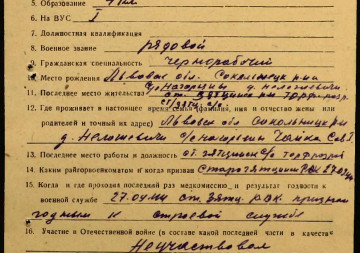 5. Образование 4 кл.
6. На ВУС I
7. Должностная квалификация
8. Военное звание рядовой
9. Гражданская специальность чернорабочий
10. Место рождения Львовск обл. Сокольницк р-на
с/с Нагоряны д. Неложовичи
11. Последнее место жительства ст. Зятцинск р-н торфразр.
12. Где проживает в настоящее время семья (фамилия, имя и отчество жены или
родителей и точный их адрес) Львовск обл Сокольницк р-н
д. Неложовичи с/с Нагоряны Чайка Сав.
13. Последнее место работы и должность с/с торфразраб
14. Каким райгорвоенкоматом и когда призван Старозятцинск РВК 27.04.44
15. Когда и где проходил последний раз медкомиссию и результат годности к
военной службе 27.04.44 Ст. Зятц. РВК признан
годным к строевой службе
16. Участие в Отечественной войне (в составе какой последней части и в качестве
Не участвовал